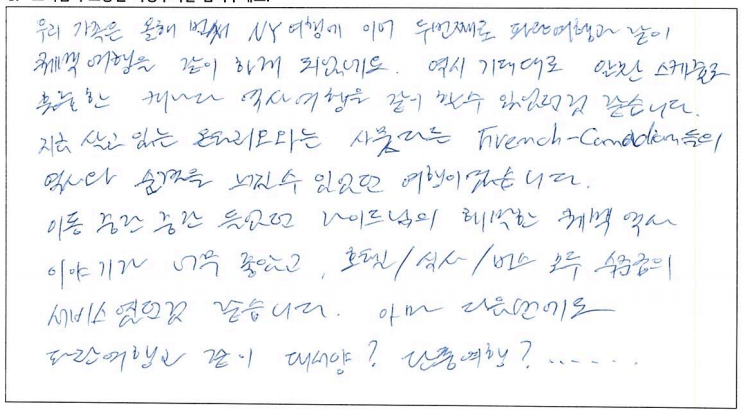 우리 가족은 올해 벌써 NY여행에 이어 두번째로 파란여행과 같이
퀘벡여행을 같이 하게 되었네요. 역시 기대대로 알찬 스케줄로
훌륭한 캐나다 역사여행을 같이 할수 있었던것 같습니다.
지금 살고 있는 온타리오와는 사뭇다른 French-Canadian들의
역사와 숨결을 느낄수 있었던 여행이었습니다.
이동 중간 중간 들었던 가이드님의 해박한 퀘벡 역사
이야기가 너무 좋았고, 호텔/식사/버스 모두 수준급의
서비스였던것 같습니다. 아마 다음번에도
파란여행과 같이 대서양? 단풍여행? ......